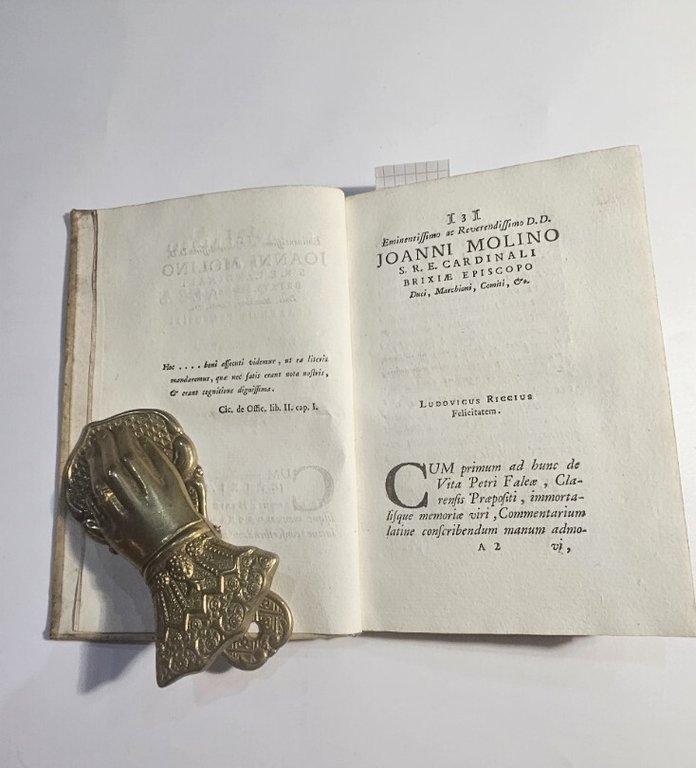 Hoc . . . . boni assecuti videmur, ut ea literis
mandaremus, quæ nec satis erant nota nostris,
& erant cognitione dignissima.
Cic. de Offic. lib. II. cap. I.
I 3 I
Eminentissimo ac Reverendissimo D.D.
JOANNI MOLINO
S. R. E. CARDINALI
BRIXIÆ EPISCOPO
Duci, Marchioni, Comiti, &c.
LUDOVICUS RICCIUS
Felicitatem.
CUM primum ad hunc de
Vita Petri Faleæ, Cla-
rensis Præpositi, immorta-
lisque memoriæ viri, Commentarium
latine conscribendum manum admo-
A 2 vi,